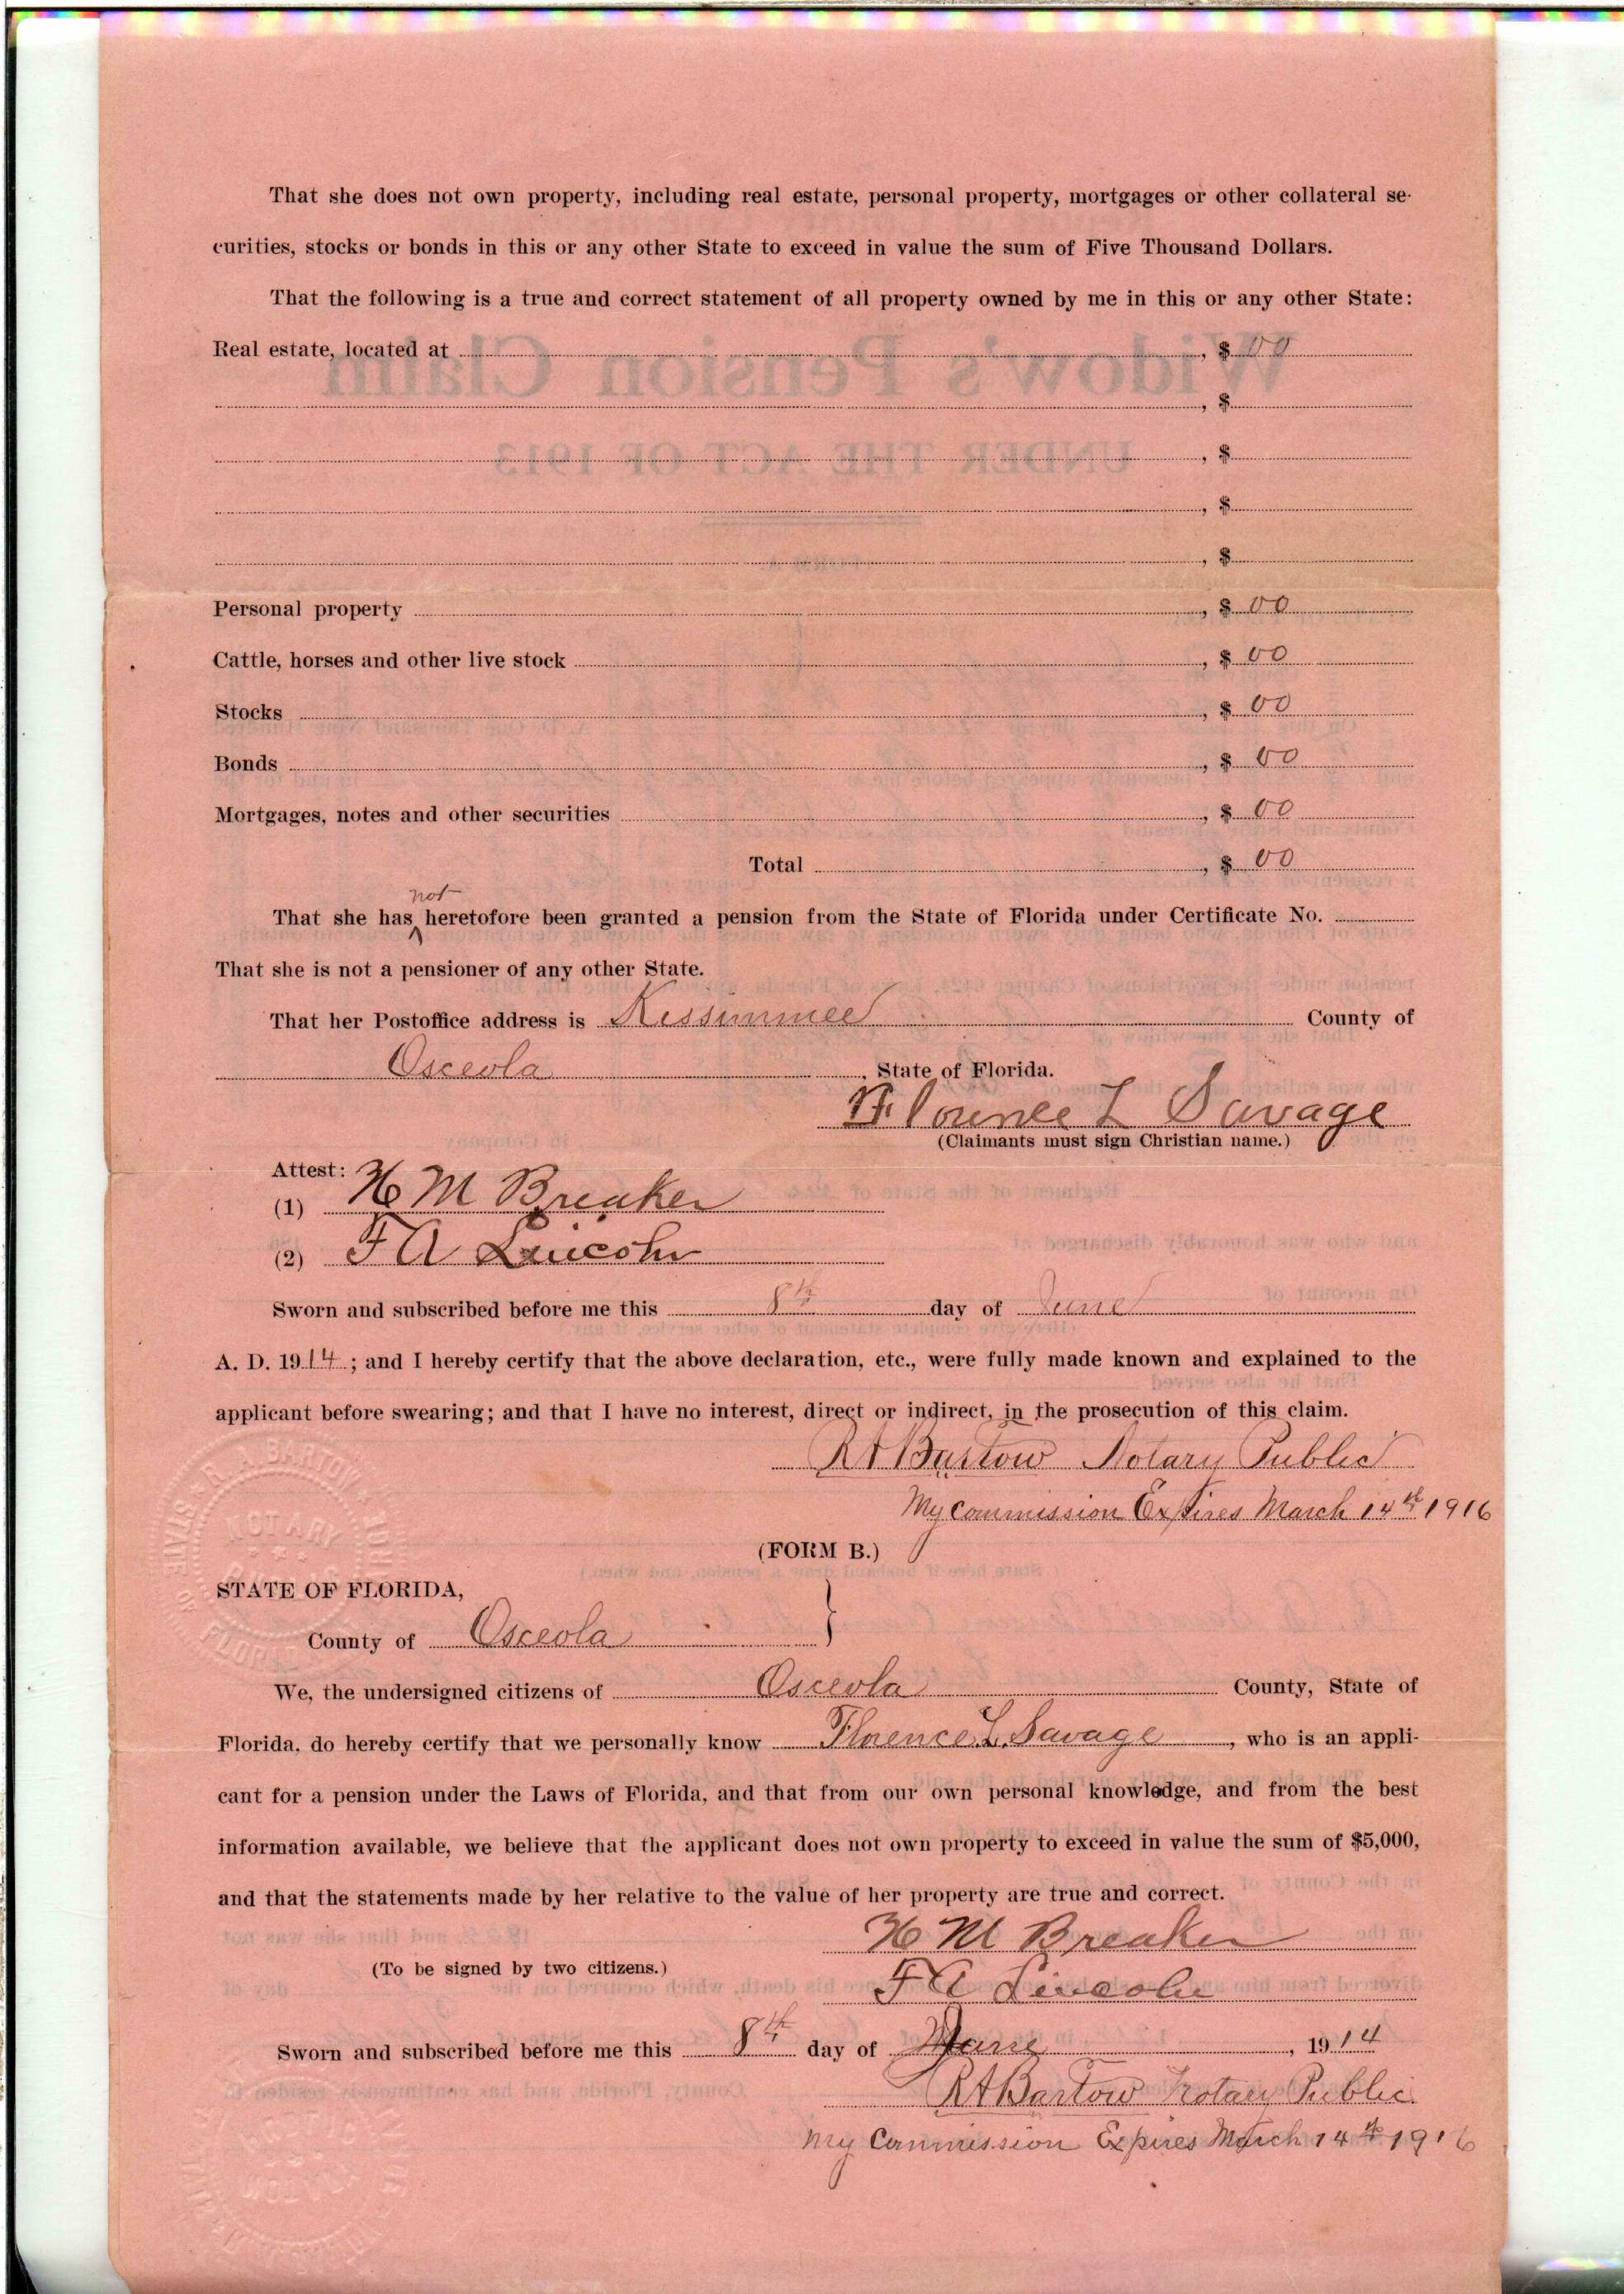 That she does not own property, including real estate, personal property, mortgages or other collateral se-
curities, stocks or bonds in this or any other State to exceed in value the sum of Five Thousand Dollars.
That the following is a true and correct statement of all property owned by me in this or any other State:
Real estate, located at , $ 00
, $
, $
, $
, $
Personal property , $ 00
Cattle, horses and other live stock , $ 00
Stocks , $ 00
Bonds , $ 00
Mortgages, notes and other securities , $ 00
Total , $ 00
not
That she has heretofore been granted a pension from the State of Florida under Certificate No.
That she is not a pensioner of any other State.
That her Postoffice address is Kissimmee County of
Osceola , State of Florida.
Florence L Savage
(Claimants must sign Christian name.)
Attest:
(1) H M Breaker
(2) F A Lincoln
Sworn and subscribed before me this 8th day of June
A. D. 1914 ; and I hereby certify that the above declaration, etc., were fully made known and explained to the
applicant before swearing; and that I have no interest, direct or indirect, in the prosecution of this claim.
R A Bartow Notary Public
My Commission Expires March 14th 1916
(FORM B.)
STATE OF FLORIDA,
County of Osceola }
We, the undersigned citizens of Osceola County, State of
Florida, do hereby certify that we personally know Florence L. Savage , who is an appli-
cant for a pension under the Laws of Florida, and that from our own personal knowledge, and from the best
information available, we believe that the applicant does not own property to exceed in value the sum of $5,000,
and that the statements made by her relative to the value of her property are true and correct.
H M Breaker
(To be signed by two citizens.)
F A Lincoln
Sworn and subscribed before me this 8th day of June , 1914
R A Bartow Notary Public
My Commission Expires March 14th 1916